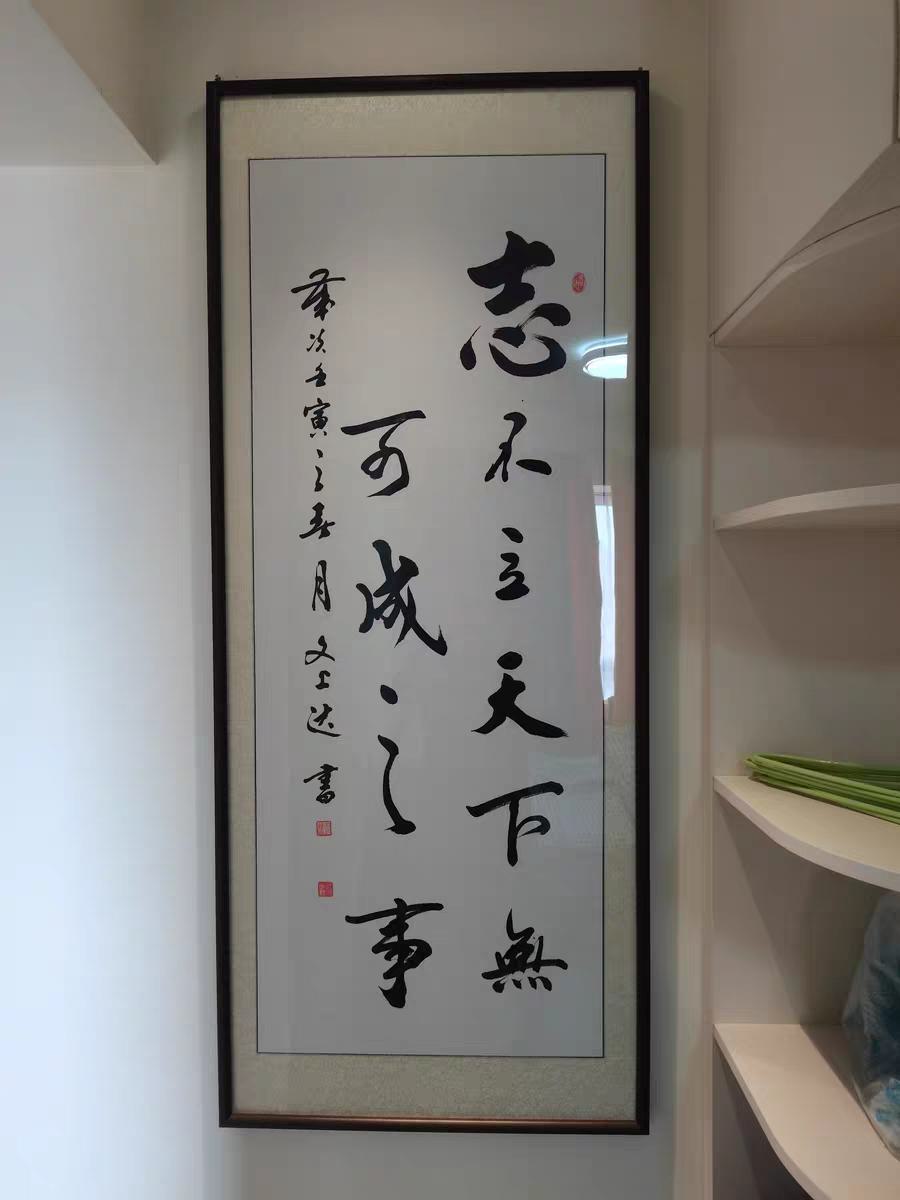 志不立天下無
可成之事
歲次壬寅之春月文上达書